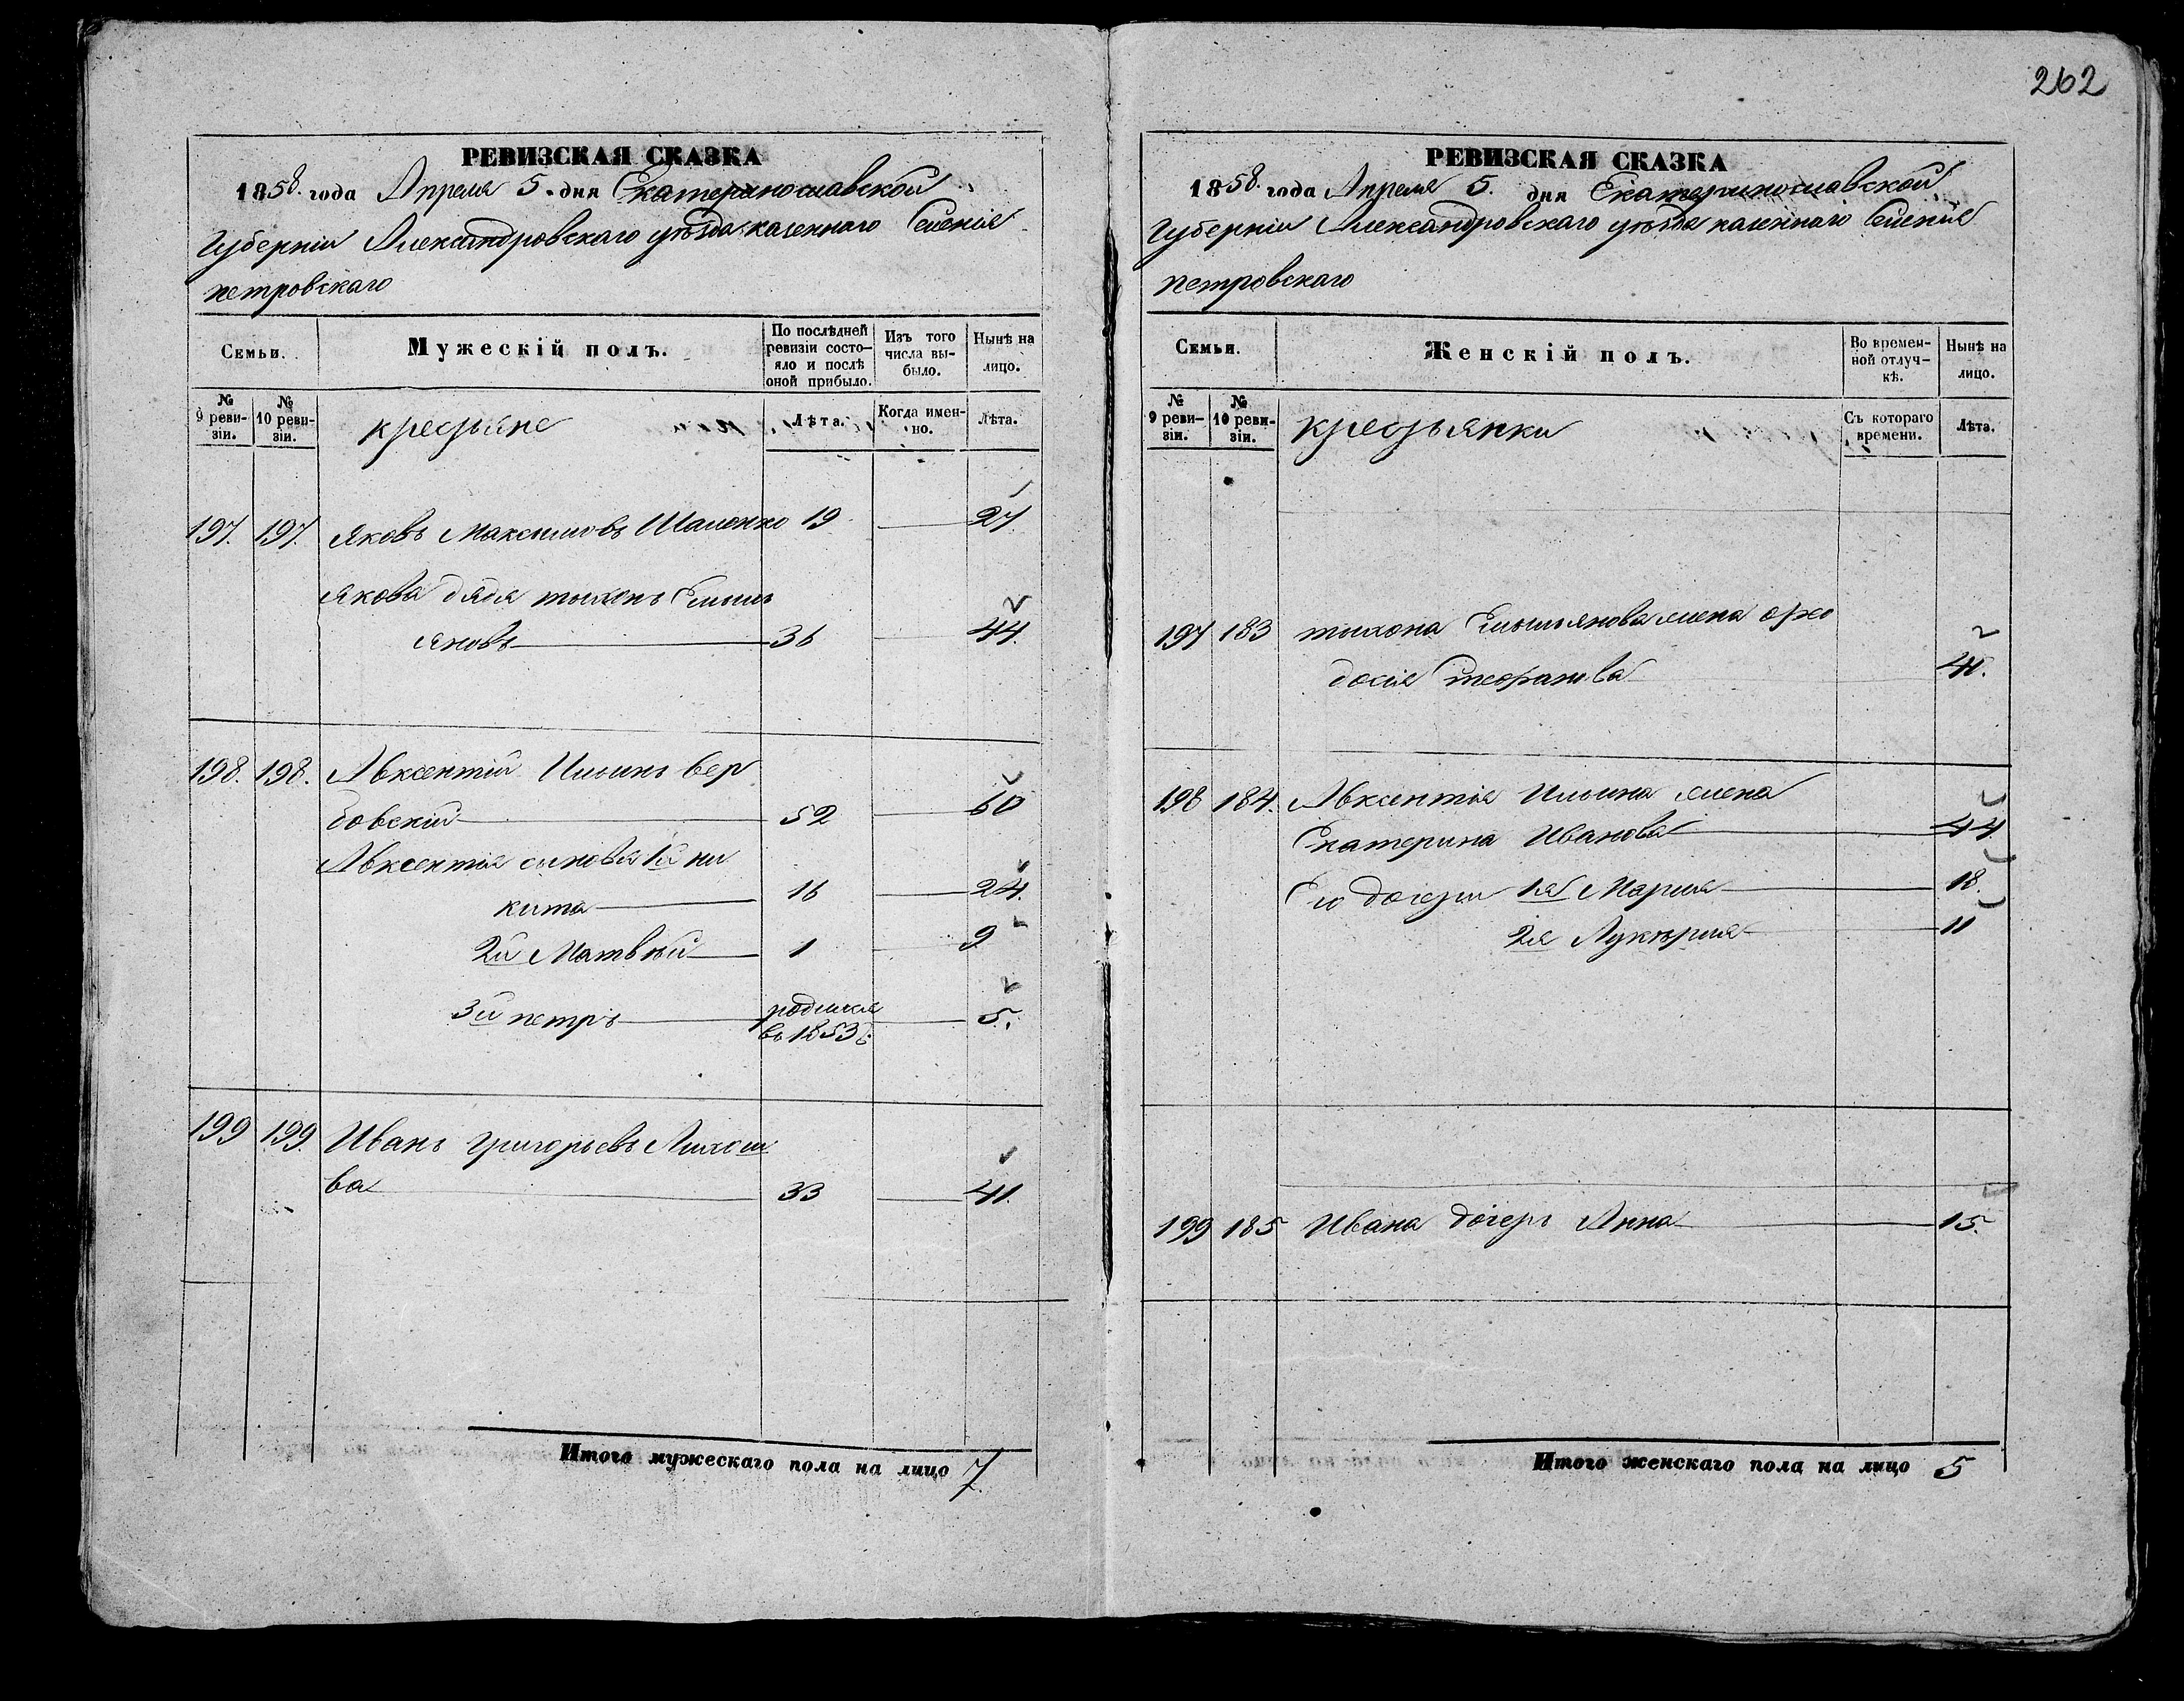 262
РЕВИЗСКАЯ СКАЗКА
1858. года Апреля 5. дня Екатеринославской
Губерніи Александровскаго уѣзда казеннаго Селенія
петровскаго
Семьи.
Мужескій полъ.
По послѣдней ревизіи состо-
яло и послѣ
оной прибыло.
Изъ того
числа вы-
было.
Нынѣ на
лицо.
№
9 реви-
зіи.
№
10 реви-
зіи.
крестьяне
Лѣта.
Когда имен-
но.
Лѣта.
197. 197. Яковъ Максимовъ 19 27
Якова дядя тихонъ Емель
яновъ 36 44.
198. 198. Авксентій Ильинъ вер
бовскій 52 60
Авксентія сыновья 1й ни
кита 16 24.
2й Матвѣй 1 9
3й петръ родился
въ 1853 г. 5.
199 199. Иванъ григорьевъ
ва 33 41.
Итого мужескаго пола на лицо 7.
РЕВИЗСКАЯ СКАЗКА
1858. года Апреля 5. дня Екатеринославской
Губерніи Александровскаго уѣзда казеннаго Селенія
петровскаго
Семьи.
Женскій полъ.
Во времен-
ной отлуч-
кѣ.
Нынѣ на
лицо.
№
9 реви-
зіи.
№
10 реви-
зіи.
крестьянки
Съ котораго
времени.
Лѣта.
197 183 тихона Емельянова жена
досія 41.
198 184. Авксентія Ильина жена
Екатерина Иванова 44
Его дочери 1я Марія 18.
2я Лукерія 11
199 185 Ивана дочерь Анна 15.
Итого женскаго пола на лицо 5